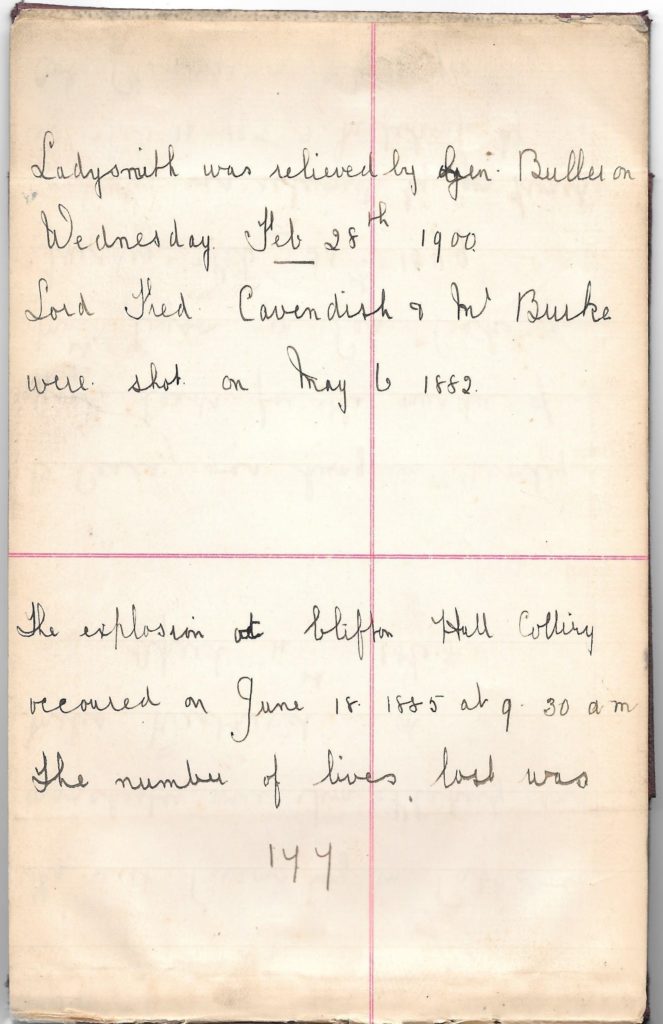 Ladysmith was relieved by Gen. Buller on
Wednesday. Feb 28th 1900.
Lord Fred. Cavendish & Mr Burke
were. shot. on May 6 1882.
The explosion at Clifton Hall Colliry
occoured on June 18. 1885 at 9. 30 a m
The number of lives lost was
177